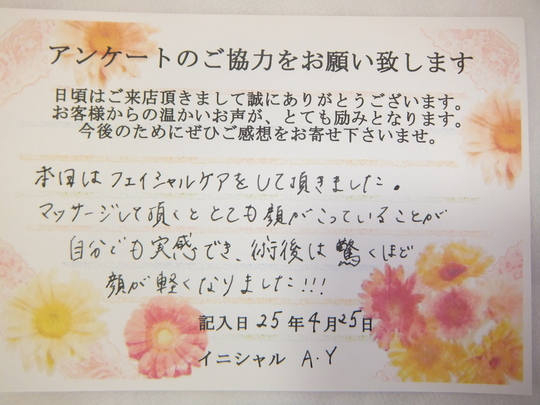 アンケートのご協力をお願い致します
日頃はご来店頂きまして誠にありがとうございます。
お客様からの温かいお声が、とても励みとなります。
今後のためにぜひご感想をお寄せ下さいませ。
本日はフェイシャルケアをして頂きました。
マッサージして頂くととても顔がこっていることが
自分でも実感でき、術後は驚くほど
顔が軽くなりました!!!
記入日 25年4月25日
イニシャル A.Y